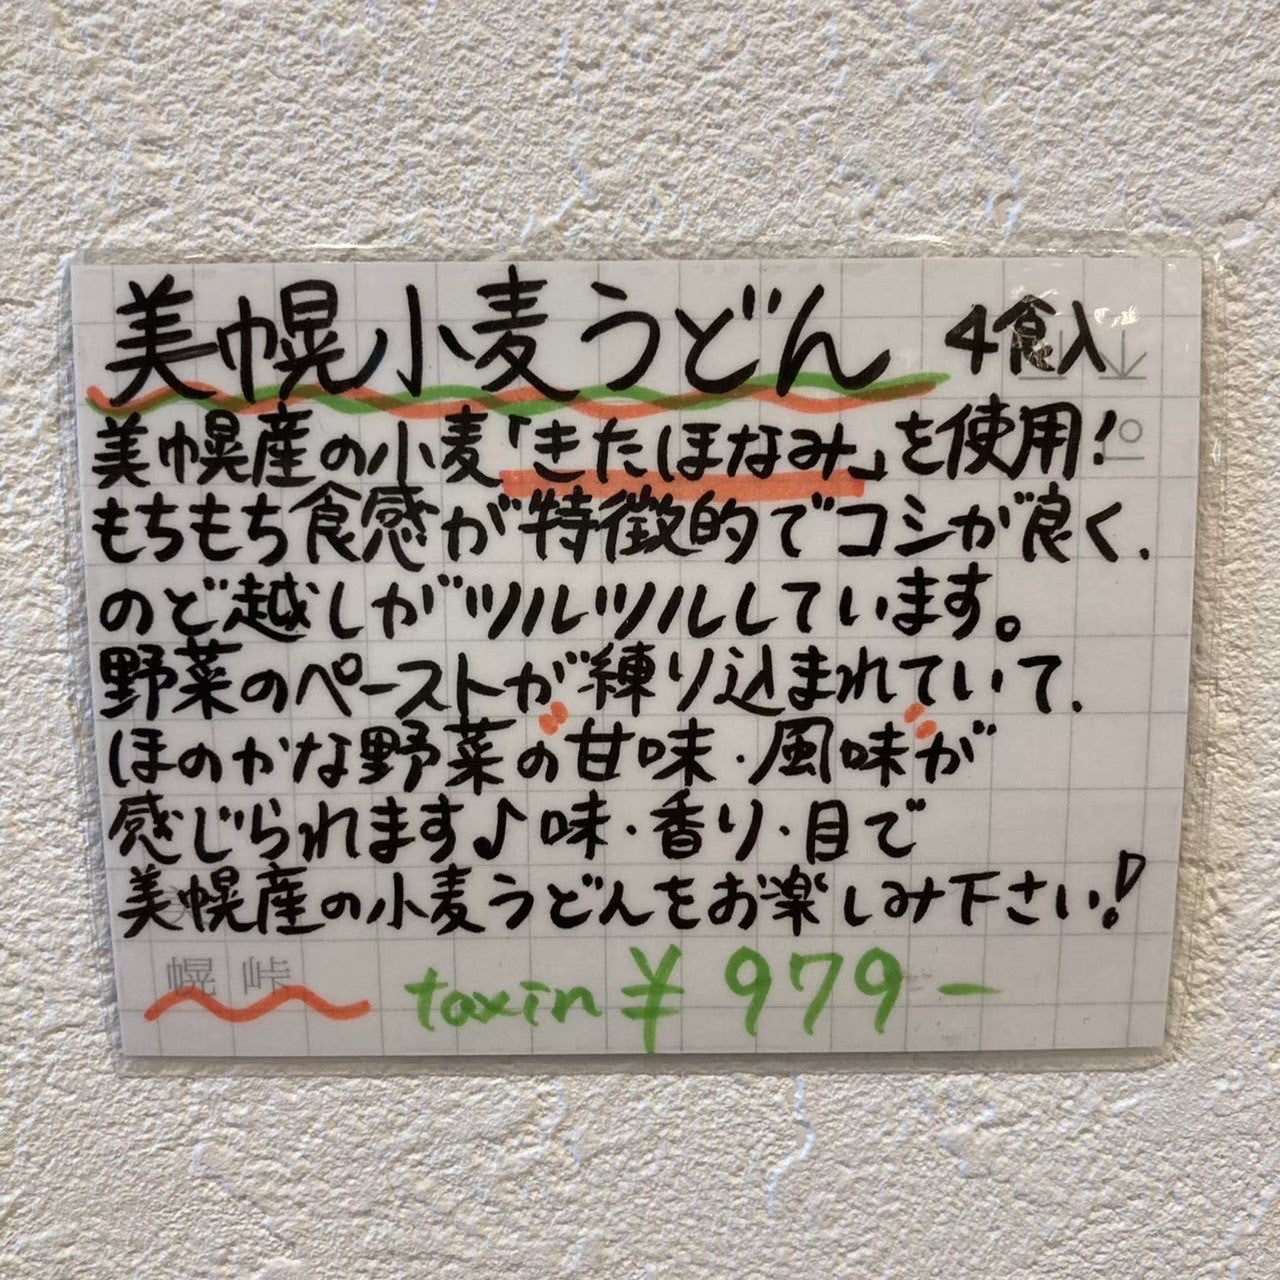 美幌小麦うどん 4食入
美幌産の小麦「きたほなみ」を使用!
もちもち食感が特徴的でコシが良く、
のど越しがツルツルしています。
野菜のペーストが練り込まれていて、
ほのかな野菜の甘味・風味が
感じられます♪味・香り・目で
美幌産の小麦うどんをお楽しみ下さい!
幌 峠
taxin ¥979-